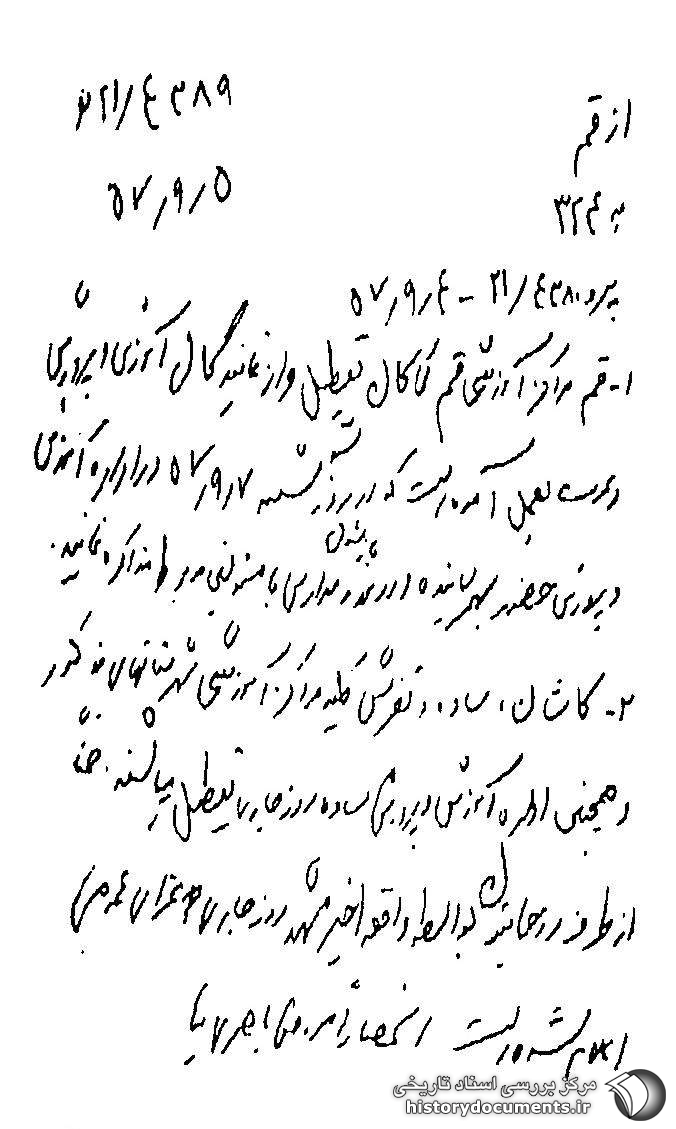 از قم ۲۱/۴۳۸۹
به ۳۲۴ ۵۷/۹/۵
پیرو ۲۱/۴۳۸۰ - ۵۷/۹/۴
۱- قم مراکز آموزشی قم کماکان تعطیل و از نمایندگان آموزش و پرورش
دعوت بعمل آمده است که در روز شنبه ۵۷/۹/۷ در اداره آموزش
و پرورش حضور بهم رسانیده و در مورد مدارس با مسئولین مربوط مذاکره نمایند.
۲- کاشان، ساوه و تفرش کلیه مراکز آموزشی شهرستانهای مذکور
و همچنین اداره آموزش و پرورش ساوه روز جاری تعطیل میباشند. ضمناً
از طرف روحانیون بواسطه واقعه اخیر مشهد روز جاری عزای عمومی
اعلام شده است
مرکز بررسی اسناد تاریخی
historydocuments.ir